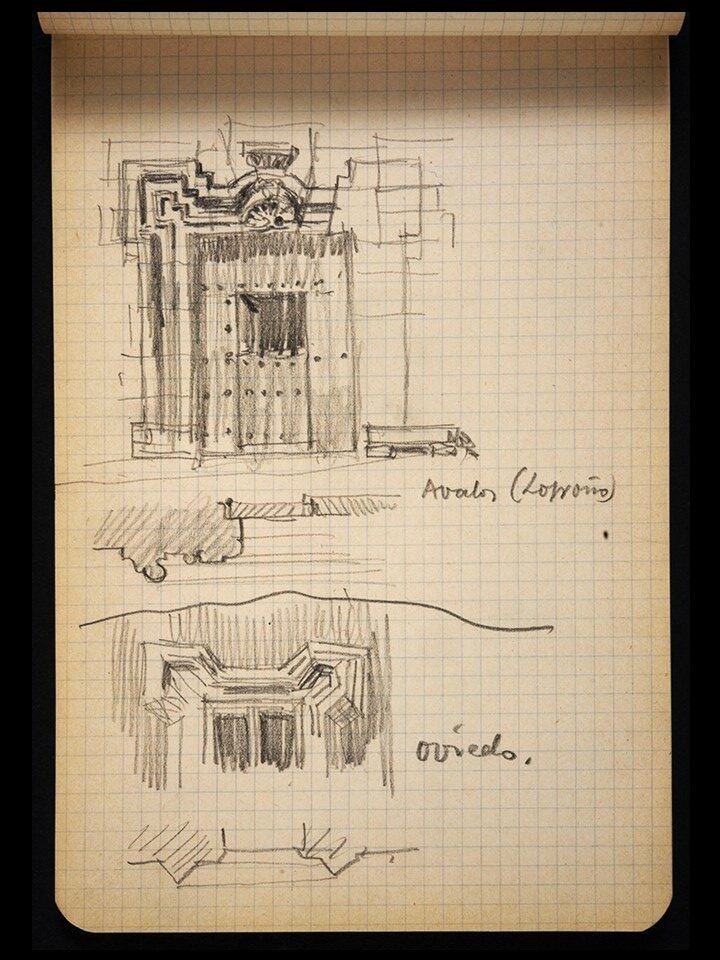 Avalos (Logroño)
oviedo.